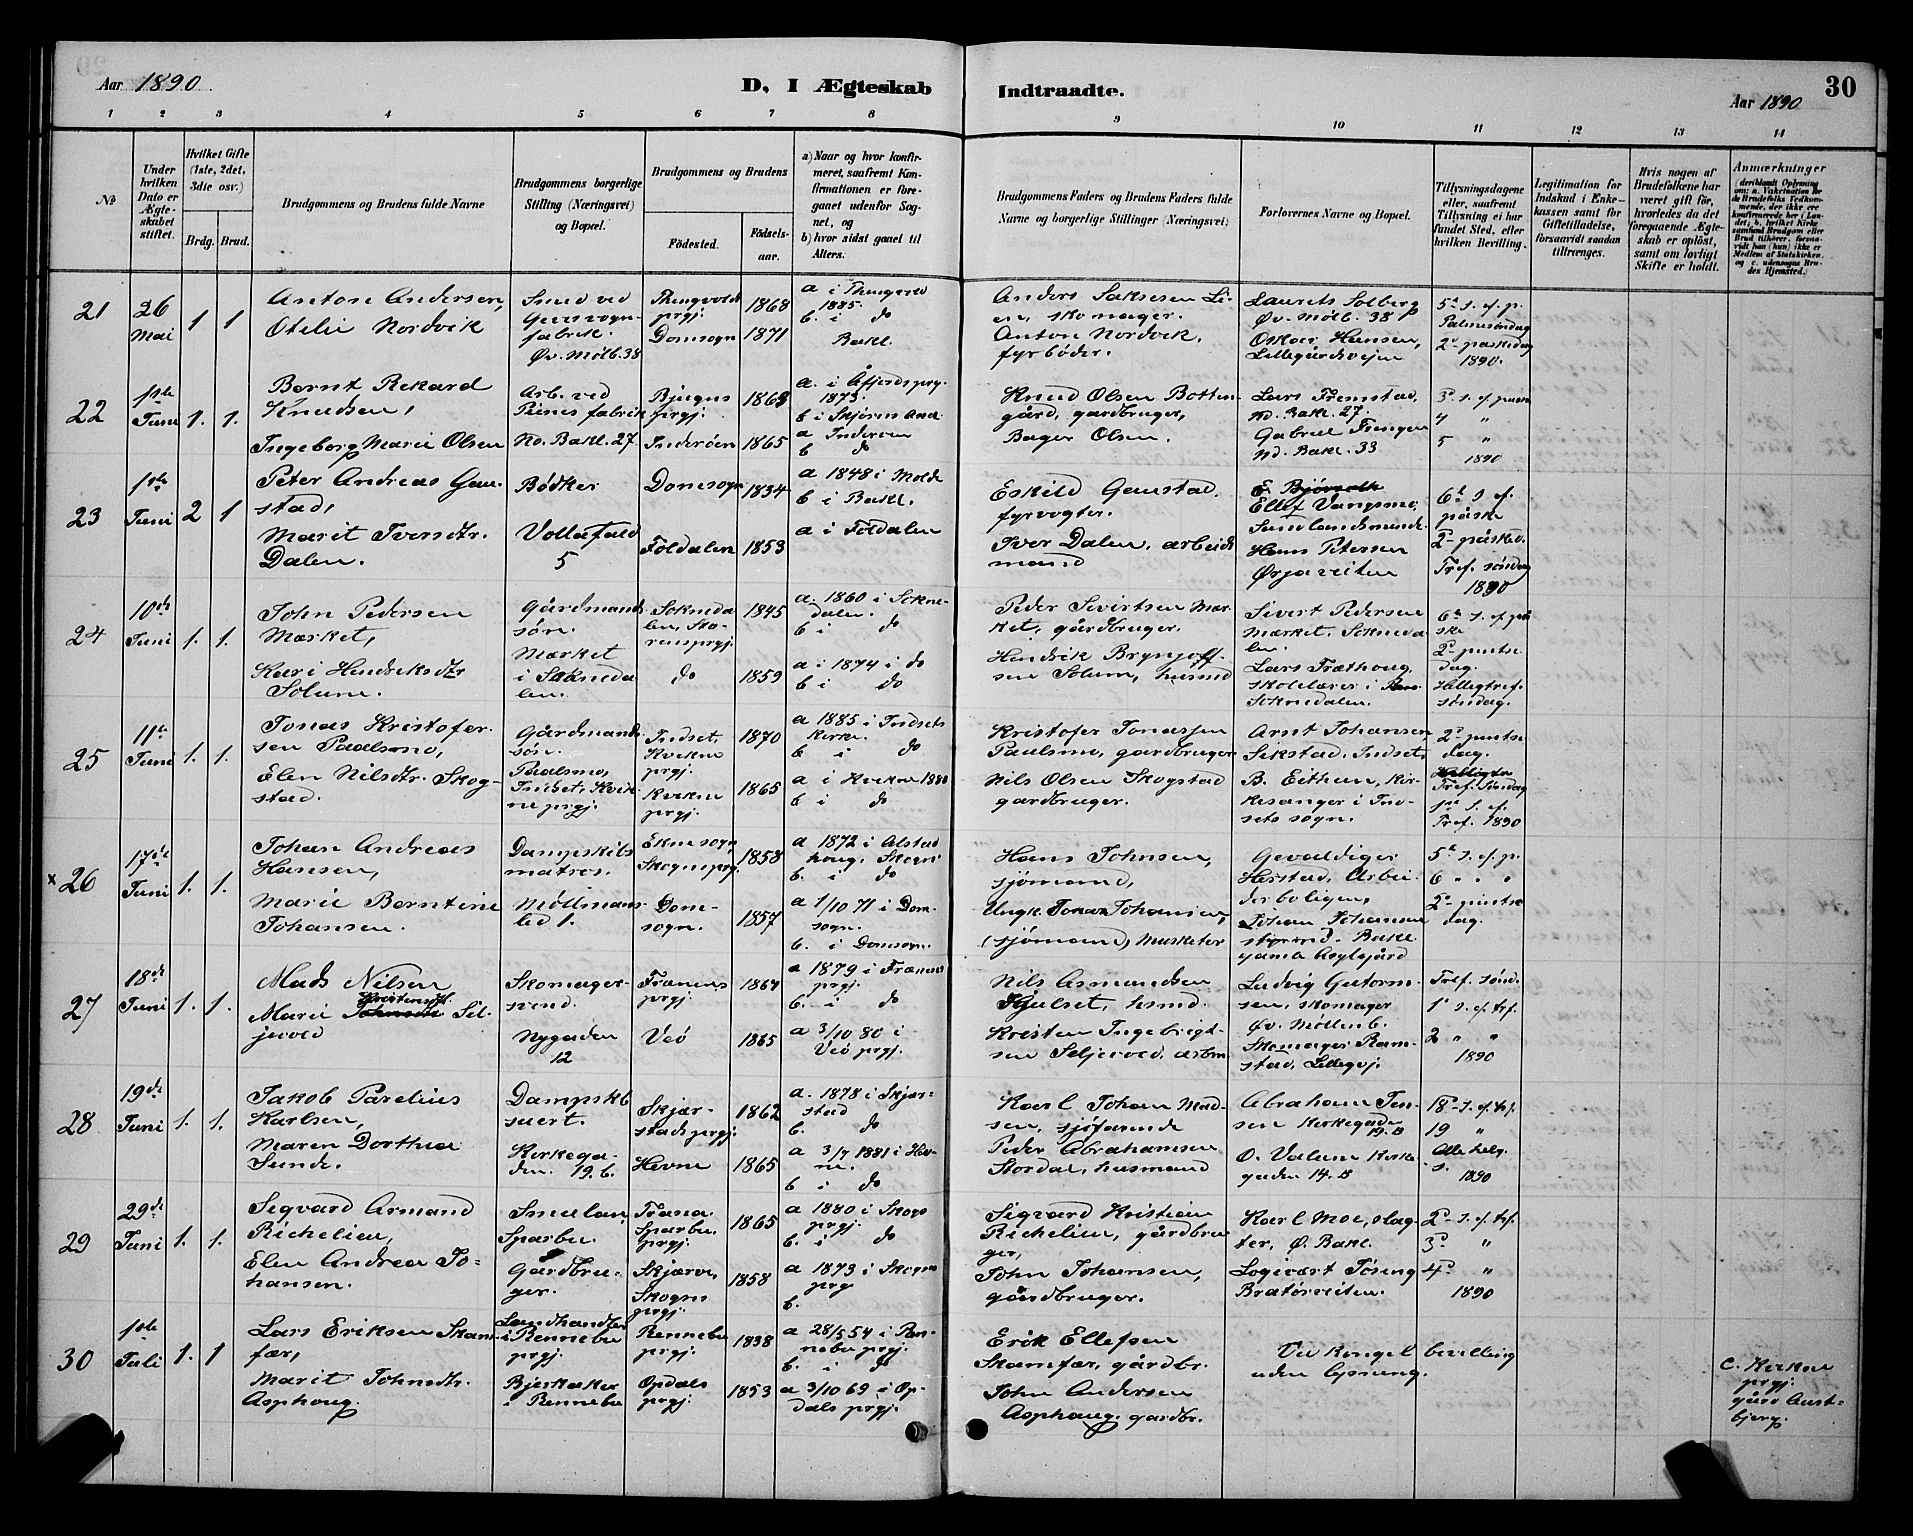 Aar 1890
D. I Ægteskab Indtraadte.
30
Aar 1890
1 2 3 4 5 6 7 8 9 10 11 12 13 14
No
Under hvilken Dato er Ægteskabet stiftet.
Hvilket Gifte (1ste, 2det, 3die osv.)
Brdg. Brud.
Brudgommens og Brudens fulde Navne
Brudgommens borgerlige Stilling (Næringsvei) og Bopæl.
Brudgommens og Brudens
Fødested.
Fødselsaar.
a) Naar og hvor konfirmeret, saafremt Konfirmationen er foregaaet udenfor Sognet, og
b) hvor sidst gaaet til Alters.
Brudgommens Faders og Brudens Faders fulde Navne og borgerlige Stillinger (Næringsvei)
Forlovernes Navne og Bopæl.
Tillysningsdagene eller, saafremt Tillysning ei har fundet Sted, efter hvilken Bevilling.
Legitimation for Indskud i Enkekassen samt for Giftetilladelse, forsaavidt saadan tiltrænges.
Hvis nogen af Brudefolkene har været gift før, hvorledes da det foregaaende Ægteskab er opløst, samt om lovligt Skifte er holdt.
Anmærkninger
21
26 Mai
1 1
Anton Andersen,
Otelie Nordvik
Smed ved
Geværvogn-
fabrik.
Øv. Mølb. 38
Thingvold
prgj.
Domsogn
1868
1871
a i Thingvold
1885.
b. i do
Bakl.
Anders Saksesen Li-
en, skomager.
Anton Nordvik,
fyrbøder.
Laurits Solberg
Øv. Mølb. 38 b
Oskar Hansen,
Lillegårdsvejen
5te s. e. p.
Palmesøndag
2den paaskedag
1890.
22
1ste Juni
1. 1.
Bernt Rekard
Knudsen,
Ingeborg Marie Olsen
Arb. ved
fabrik
Nd. Bakl. 27
Bjugns
prgj.
Inderøen
1863
1865
a. i Åfjords prg.
1873.
a Inderøen
b do
Knud Olsen Botten-
gård, gardbruger,
Bager Olsen.
Lars Fremstad,
Nd. Bakl. 27.
Gabriel
Nd. Bakl. 33
3die s. e. paaske
4 "
5 "
1890
23
1ste Juni
2 1
Peter Andreas Gau-
stad,
Marit Iversdtr.
Dalen.
Bødker
Vollafald
5
Domsogn
Foldalen
1834
1853
a 1848 i Molde
b i Bakl.
a i Foldalen
Eskild Gaustad.
fyrvogter.
Iver Dalen, arbeids
mand
Ellef Vangsmo,
Hans Petersen
Ørjaveiten
6te s. e.
påske
2den påsked.
Tref. søndag
1890
24
10de Juni
1. 1.
John Pedersen
Mærket,
Kari Hendriksdtr
Solum.
Gårdmands
søn.
Mærket
i Sokneda-
len.
Sokneda-
len, Stø-
rens prgj.
do
1845
1859
a. 1860 i Sokne-
dalen.
b i do
a i 1874 i do
b i do
Peder Sivertsen Mær-
ket, gårdbruger.
Hendrik Brynjolf-
sen Solum, husmd
Sivert Pedersen
Mærket, Sokneda-
len.
Lars Træthoug,
skolelærer i
Soknedalen.
6te s. e. på
ske
2den pintse
dag.
Helligtref.
søndag.
25
11te Juni
1. 1.
Jonas Kristofer-
sen Paalsmo,
Elen Nilsdtr. Skog-
stad.
Gårdmands
søn.
Paalsmo,
Indset, Kvik-
ne prgj.
Indset,
Kvikne
prgj.
Kvikne
prgj.
1870
1865
a 1885 i Indsets
kirke.
b i do
a i Kvikne 1880
b i do
Kristofer Jonassen
Paulsmo, gardbruger
Nils Olsen Skogstad
gardbruger.
Arnt Johansen
Sikstad, Indset,
B. Eithun, kir-
kesanger i Ind-
sets sogn.
2den pintse
dag.
Tref. søndag
1ste s. e.
Tref. 1890
x 26
17de Juni
1. 1.
Johan Andreas
Hansen,
Marie Berntine
Johansen.
Dampskibs
matros.
Møllmans-
led 1.
Eknesogn
Skogn prg.
Dom-
sogn.
1858
1857
a 1872 i Alstad
houg, Skogn
b. i do
a 1/10 71 i Dom-
sogn.
b. i Domsogn.
Hans Johnsen,
sjømand,
Ungk. Jonas Johansen,
(sjømand) musketer
Gevaldiger
Herstad, Arbei-
derboligen,
Johan Johansen
styrmd. Bakl.
5te s. e. p.
6 " "
2den pintse
dag.
27
18de Juni
1. 1.
Mads Nilsen
Marie Kristensdtr. Sil-
jevold
Skomager-
svend.
Nygaden
12
Frænens
prgj.
Veø
1867
1865
a 1879 i Frænens
prgj.
b. i do
a 3/10 80 i
Veø prgj.
Nils Asmundsen
Hjulset, husmd.
Kristen Ingebrigt-
sen Seljevold, arbm
Ludvig Gutorm-
sen, skomager
Øv. Møllenb.
Skomager Ram-
stad, Lillegvj.
Tref. sønd.
1ste s. e. trf.
2 " "
1890
28
19de Juni
1. 1.
Jakob Parelius
Karlsen,
Maren Dorthea
Sunde.
Dampskb
smørt.
Kirkega-
den. 19. b.
Skjær-
stads prgj.
Hevne
1862
1865
a. 1878 i Skjær-
stad
b. do
a 3/7 1881 i Hev-
ne.
b i do
Karl Johan Mad-
sen, sjøfarende
Peder Abrahamsen
Stordal, husmand
Abraham Jen-
sen Kirkegade
19. B
O. Valum Kirke
gaden 14. B
18de s. e. trf.
19 "
Alle helg.
s.
1890
29
29de Juni
1. 1.
Sigvard Armand
Richelieu,
Elen Andrea Jo-
hansen.
Smulan,
Sparbu.
Gårdbru-
ger.
Sparbu.
prgj.
Skjærve,
Skogns
prgj.
1865
1858
a 1880 i Skogn
prgj.
b. i do
a 1873 i Skogn
prg
b.
Sigvard Kristian
Richelieu, gårdbru
ger,
John Johansen,
gårdbruger.
Karl Moe, slag-
ter, Ø. Bakl.
Bratørveiten.
2den s. e. trf.
3die "
4de "
1890
30
1ste Juli
1. 1
Lars Eriksen Skam-
fær,
Marit Johnsdtr.
Asphoug.
Landhandler
i Rennebu
prgj.
Bjerkaker
i Rennebu
Rennebu
prgj.
Opdals
prgj.
1838
1853
a 28/5 54 i Ren-
nebu prgj.
b. i do
a 3/10 69 i Op-
dals prgj.
Erik Ellefsen
Skamfær, gårdbr.
John Andersen
Asphoug. gardbr.
Ved Kongel. bevilling
uden lysning.
C. Kvikne
prgj.
gård Aust-
bjerg.